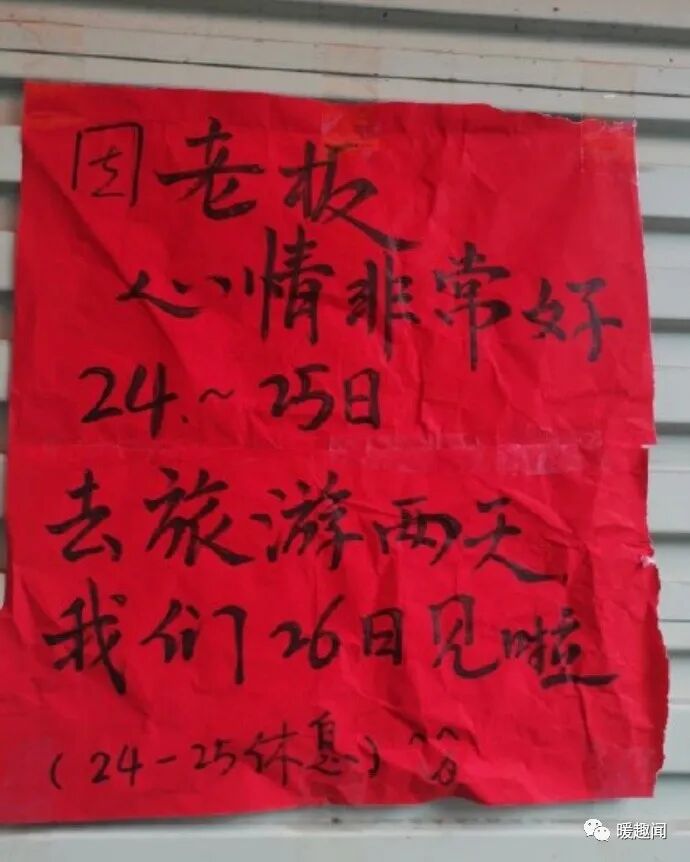 因老板
心情非常好
24.~25日
去旅游两天
我们26日见啦
(24-25休息)
暖趣闻